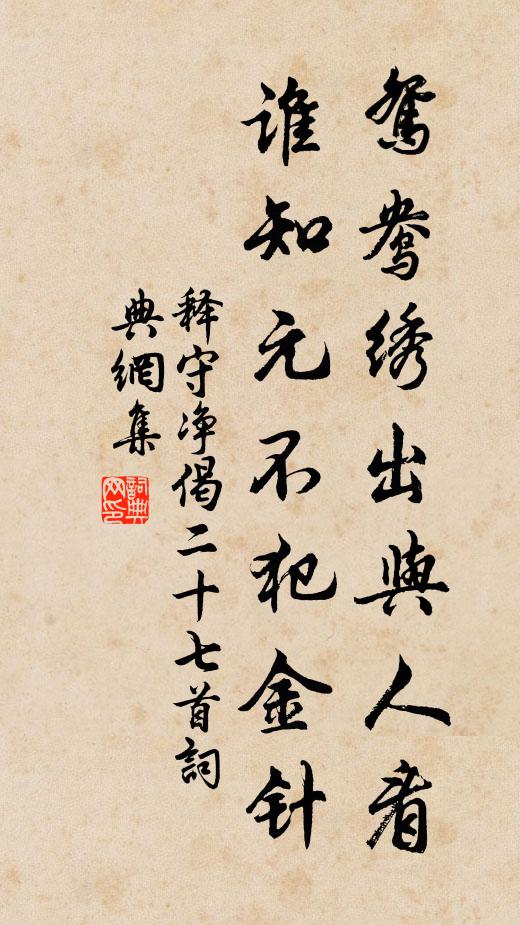 鸳鸯绣出與人看
谁知元不犯金针
释守净偈二十七首詞
典網集
詞典网印